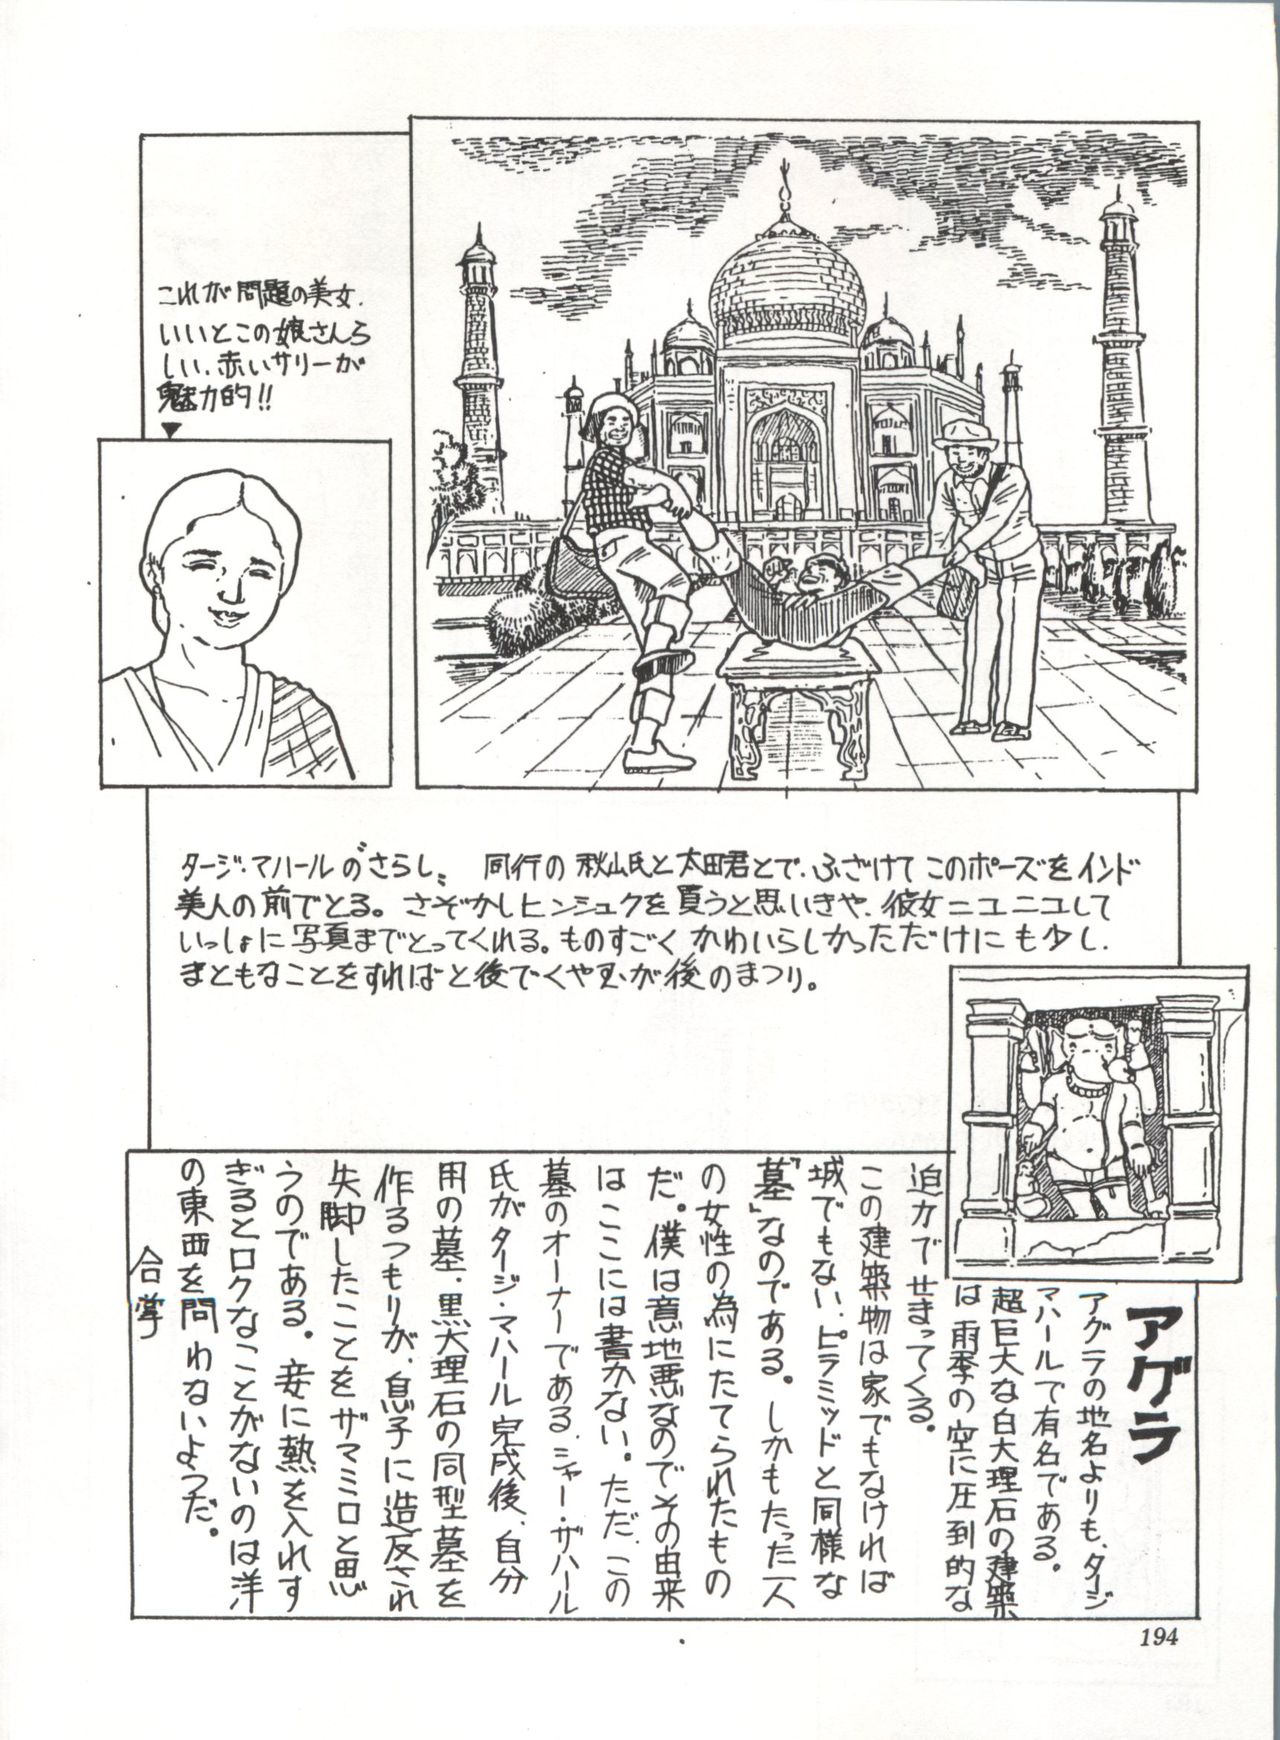 これが問題の美女.
いいとこの娘さんら
しい.赤いサリーが
魅力的!!
タージ・マハールの〝さらし〟 同行の秋山氏と太田君とで、ふざけてこのポーズをインド
美人の前でとる。さぞかしヒンシュクを買うと思いきや、彼女ニコニコして
いっしょに写真までとってくれる。ものすごくかわいらしかっただけにも少し、
まともなことをすればと後でくやむが後のまつり。
アグラ
アグラの地名よりも、タージ
マハールで有名である。
超巨大な白大理石の建築
は雨季の空に圧到的な
迫力でせまってくる。
この建築物は家でもなければ
城でもない、ピラミッドと同様な
「墓」なのである。しかもたった一人
の女性の為にたてられたもの
だ。僕は意地悪なのでその由来
はここには書かない。ただ、この
墓のオーナーである、シャー・ザハール
氏がタージ・マハール完成後、自分
用の墓、黒大理石の同型墓を
作るつもりが、息子に造反され
失脚したことをザマミロと思
うのである。妾に熱を入れす
ぎるとロクなことがないのは洋
の東西を問わないようだ。
合掌
194